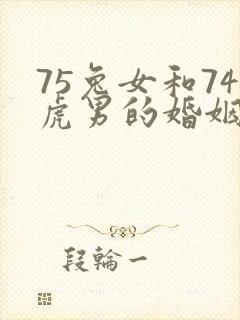 75兔女和74
虎男的婚姻
段輪一